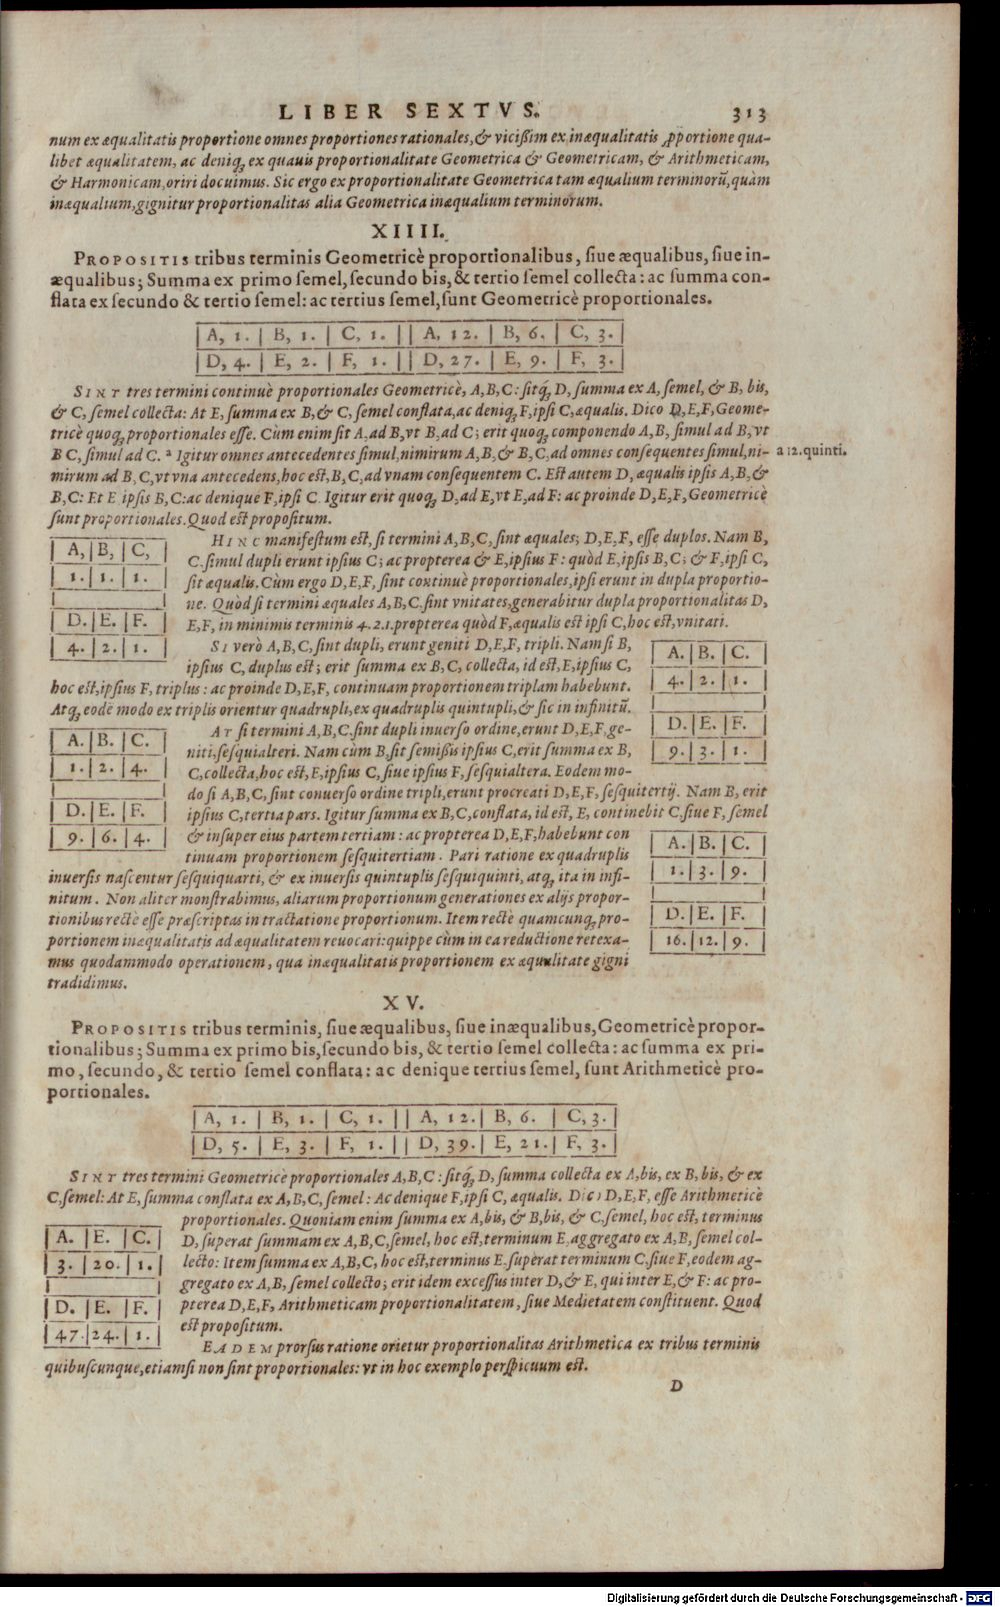 LIBER SEXTVS. 313
num ex æqualitatis proportione omnes proportiones rationales, & vicißim ex inæqualitatis ꝓportione qua-
libet æqualitatem, ac deniq; ex quauis proportionalitate Geometrica & Geometricam, & Arithmeticam,
& Harmonicam, oriri docuimus. Sic ergo ex proportionalitate Geometrica tam æqualium terminorũ, quàm
inæqualium, gignitur proportionalitas alia Geometrica inæqualium terminorum.
XIIII.
PROPOSITIS tribus terminis Geometricè proportionalibus, ſiue æqualibus, ſiue in-
æqualibus; Summa ex primo ſemel, ſecundo bis, & tertio ſemel collecta: ac ſumma con-
flata ex ſecundo & tertio ſemel: ac tertius ſemel, ſunt Geometricè proportionales.
| A, 1. | B, 1. | C, 1. | | A, 12. | B, 6. | C, 3. |
| D, 4. | E, 2. | F, 1. | | D, 27. | E, 9. | F, 3. |
SINT tres termini continuè proportionales Geometricè, A, B, C: ſitq́; D, ſumma ex A, ſemel, & B, bis,
& C, ſemel collecta: At E, ſumma ex B, & C, ſemel conflata, ac deniq; F, ipſi C, æqualis. Dico D, E, F, Geome-
tricè quoq; proportionales eſſe. Cùm enim ſit A, ad B, vt B, ad C; erit quoq; componendo A, B, ſimul ad B, vt
B C, ſimul ad C. a Igitur omnes antecedentes ſimul, nimirum A, B, & B, C, ad omnes conſequentes ſimul, ni- a 12. quinti.
mirum ad B, C, vt vna antecedens, hoc eſt, B, C, ad vnam conſequentem C. Eſt autem D, æqualis ipſis A, B, &
B, C: Et E ipſis B, C: ac denique F, ipſi C. Igitur erit quoq; D, ad E, vt E, ad F: ac proinde D, E, F, Geometricè
ſunt proportionales. Quod eſt propoſitum.
| A, | B, | C, |
| 1. | 1. | 1. |
| D. | E. | F. |
| 4. | 2. | 1. |
HINC manifeſtum eſt, ſi termini A, B, C, ſint æquales; D, E, F, eſſe duplos. Nam B,
C, ſimul dupli erunt ipſius C; ac propterea & E, ipſius F: quòd E, ipſis B, C; & F, ipſi C,
ſit æqualis. Cùm ergo D, E, F, ſint continuè proportionales, ipſi erunt in dupla proportio-
ne. Quòd ſi termini æquales A, B, C. ſint vnitates, generabitur dupla proportionalitas D,
E, F, in minimis terminis 4. 2. 1. propterea quòd F, æqualis eſt ipſi C, hoc eſt, vnitati.
SI verò A, B, C, ſint dupli, erunt geniti D, E, F, tripli. Nam ſi B,
ipſius C, duplus eſt; erit ſumma ex B, C, collecta, id eſt, E, ipſius C,
hoc eſt, ipſius F, triplus: ac proinde D, E, F, continuam proportionem triplam habebunt.
Atq; eodẽ modo ex triplis orientur quadrupli, ex quadruplis quintupli, & ſic in infinitũ.
| A. | B. | C. |
| 4. | 2. | 1. |
| D. | E. | F. |
| 9. | 3. | 1. |
| A. | B. | C. |
| 1. | 2. | 4. |
| D. | E. | F. |
| 9. | 6. | 4. |
AT ſi termini A, B, C, ſint dupli inuerſo ordine, erunt D, E, F, ge-
niti, ſeſquialteri. Nam cùm B, ſit ſemißis ipſius C, erit ſumma ex B,
C, collecta, hoc eſt, E, ipſius C, ſiue ipſius F, ſeſquialtera. Eodem mo-
do ſi A, B, C, ſint conuerſo ordine tripli, erunt procreati D, E, F, ſeſquitertij. Nam B, erit
ipſius C, tertia pars. Igitur ſumma ex B, C, conflata, id eſt, E, continebit C, ſiue F, ſemel
& inſuper eius partem tertiam: ac propterea D, E, F, habebunt con
tinuam proportionem ſeſquitertiam. Pari ratione ex quadruplis
inuerſis naſcentur ſeſquiquarti, & ex inuerſis quintuplis ſeſquiquinti, atq; ita in infi-
nitum. Non aliter monſtrabimus, aliarum proportionum generationes ex alijs propor-
tionibus rectè eſſe præſcriptas in tractatione proportionum. Item rectè quamcunq; pro-
portionem inæqualitatis ad æqualitatem reuocari: quippe cùm in ea reductione retexa-
mus quodammodo operationem, qua inæqualitatis proportionem ex æqualitate gigni
tradidimus.
| A. | B. | C. |
| 1. | 3. | 9. |
| D. | E. | F. |
| 16. | 12. | 9. |
XV.
PROPOSITIS tribus terminis, ſiue æqualibus, ſiue inæqualibus, Geometricè propor-
tionalibus; Summa ex primo bis, ſecundo bis, & tertio ſemel collecta: ac ſumma ex pri-
mo, ſecundo, & tertio ſemel conflata: ac denique tertius ſemel, ſunt Arithmeticè pro-
portionales.
| A, 1. | B, 1. | C, 1. | | A, 12. | B, 6. | C, 3. |
| D, 5. | E, 3. | F, 1. | | D, 39. | E, 21. | F, 3. |
SINT tres termini Geometricè proportionales A, B, C: ſitq́; D, ſumma collecta ex A, bis, ex B, bis, & ex
C, ſemel: At E, ſumma conflata ex A, B, C, ſemel: Ac denique F, ipſi C, æqualis. Dico D, E, F, eſſe Arithmeticè
proportionales. Quoniam enim ſumma ex A, bis, & B, bis, & C, ſemel, hoc eſt, terminus
D, ſuperat ſummam ex A, B, C, ſemel, hoc eſt, terminum E, aggregato ex A, B, ſemel col-
lecto: Item ſumma ex A, B, C, hoc eſt, terminus E, ſuperat terminum C, ſiue F, eodem ag-
gregato ex A, B, ſemel collecto; erit idem exceſſus inter D, & E, qui inter E, & F: ac pro-
pterea D, E, F, Arithmeticam proportionalitatem, ſiue Medietatem conſtituent. Quod
eſt propoſitum.
| A. | E. | C. |
| 3. | 20. | 1. |
| D. | E. | F. |
| 47. | 24. | 1. |
EADEM prorſus ratione orietur proportionalitas Arithmetica ex tribus terminis
quibuſcunque, etiamſi non ſint proportionales: vt in hoc exemplo perſpicuum eſt.
D
Digitalisierung gefördert durch die Deutsche Forschungsgemeinschaft - DFG